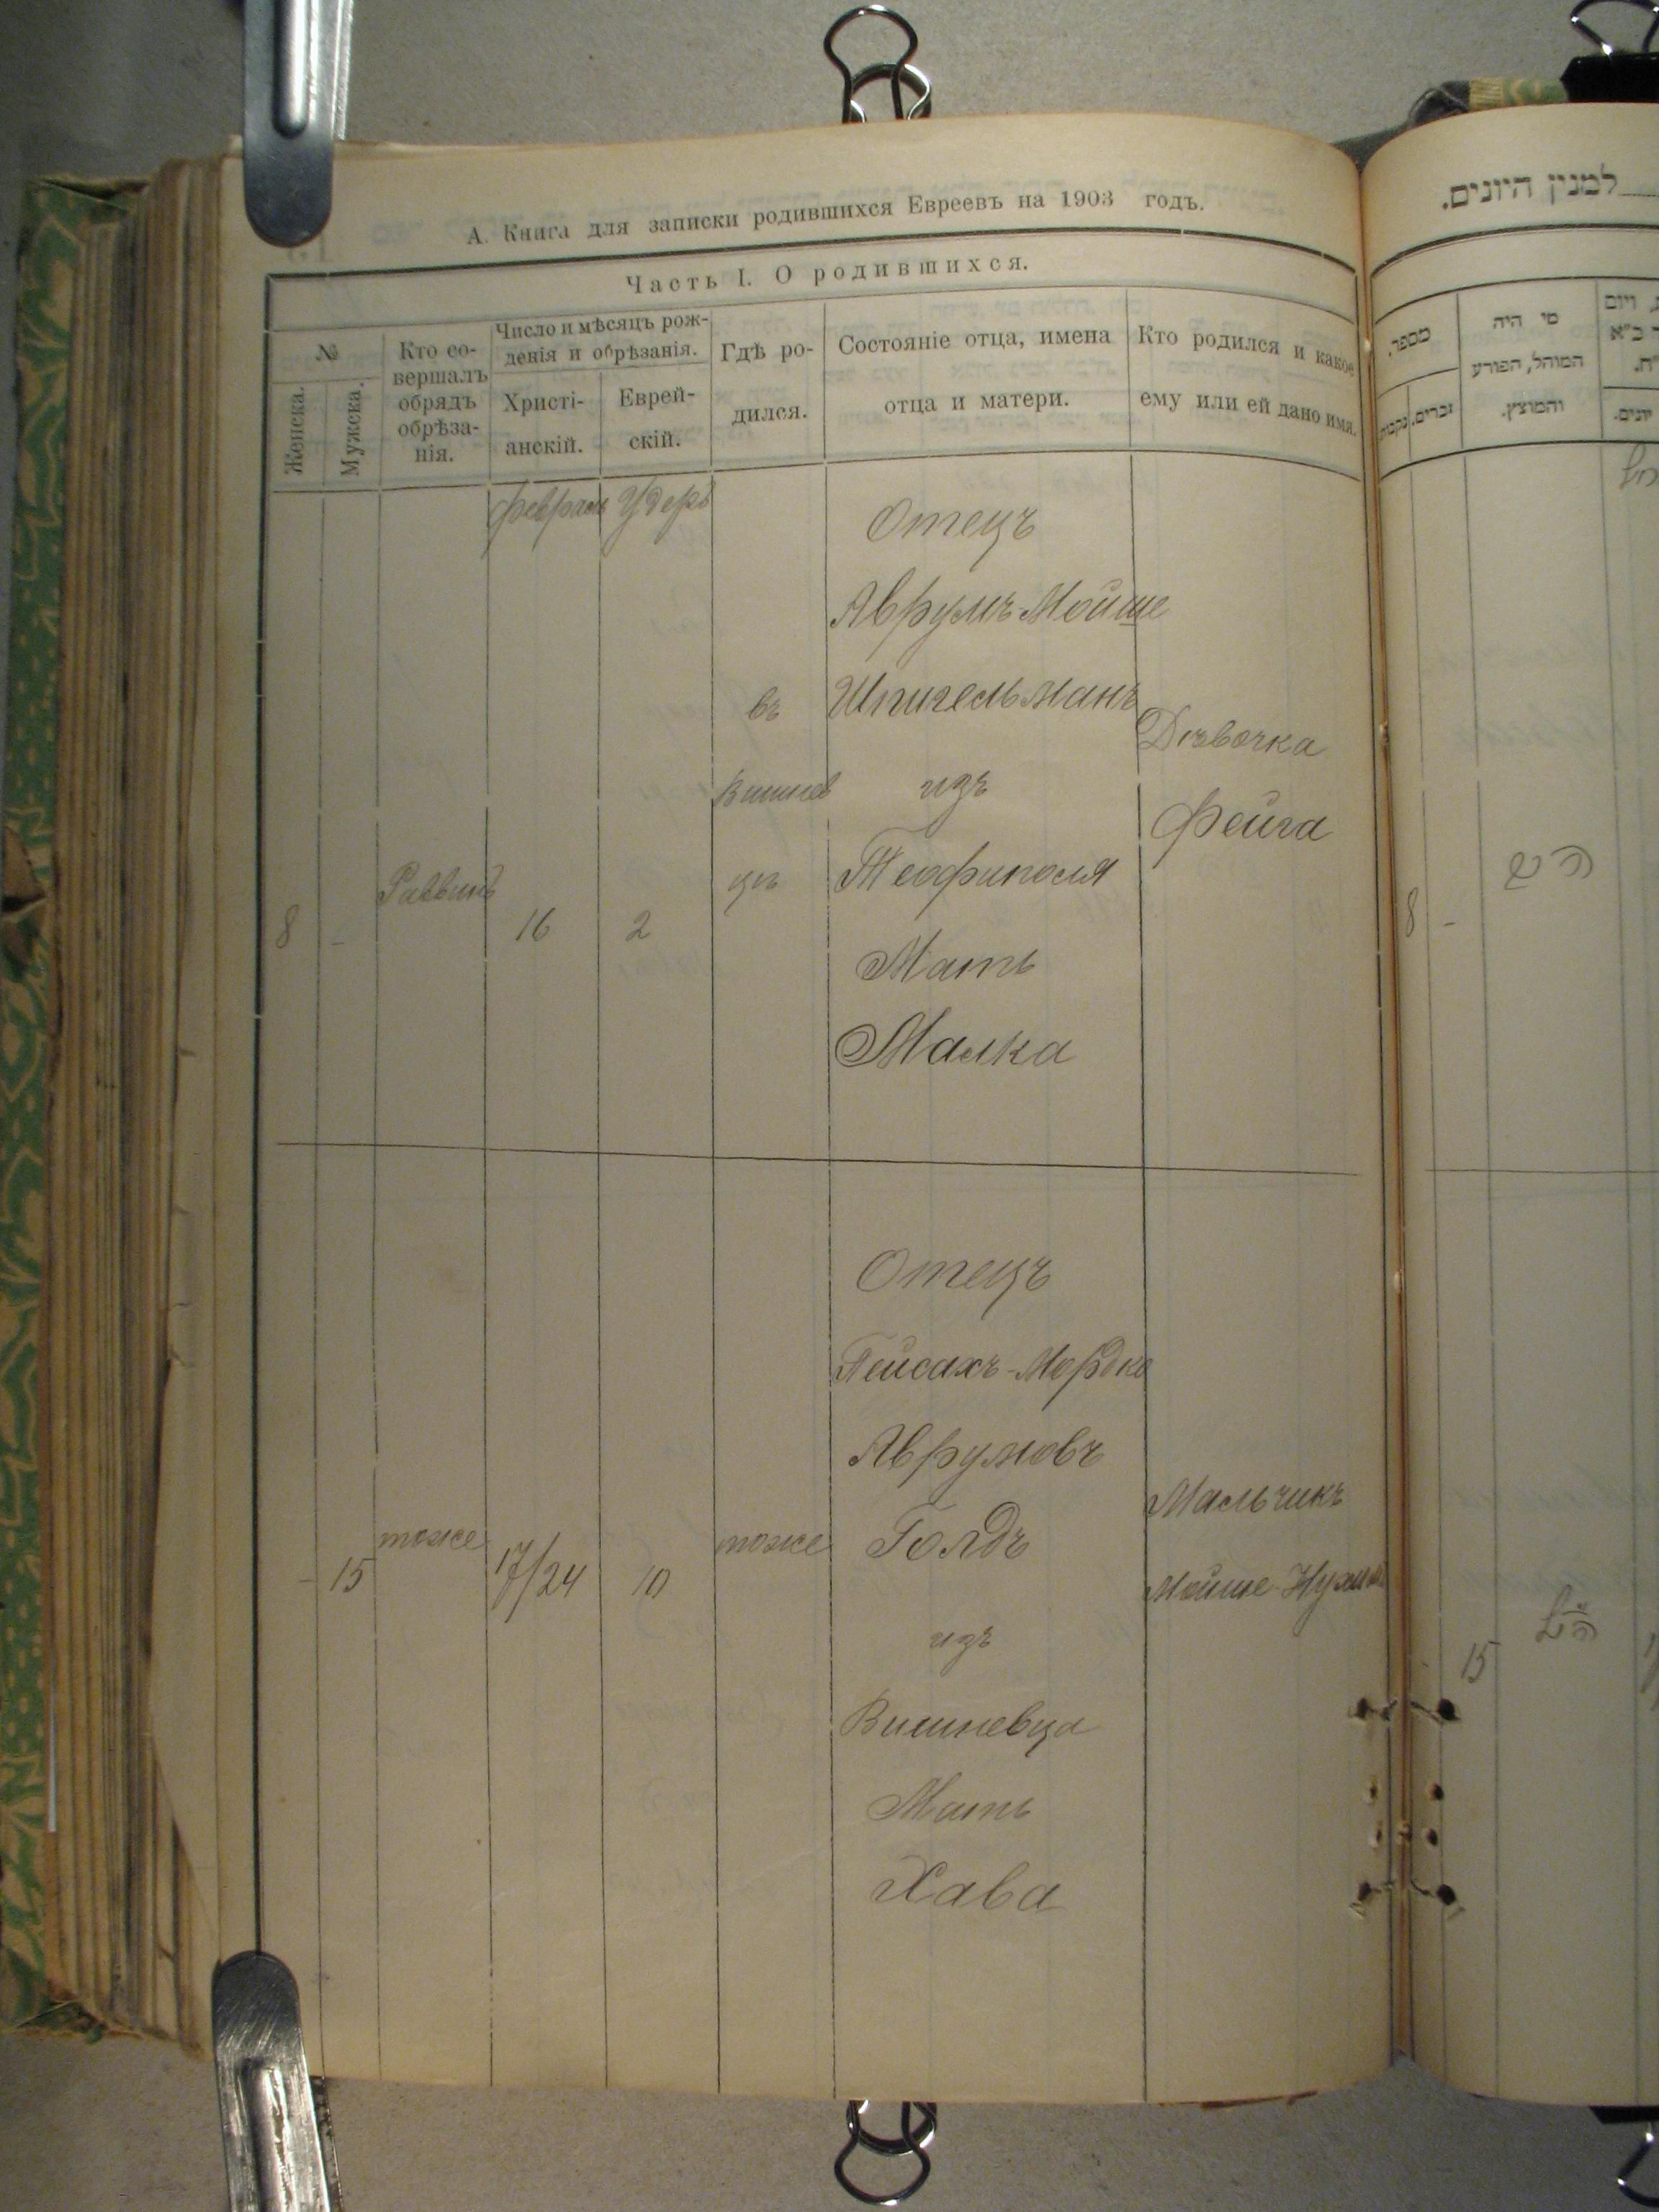 А. Книга для записки родившихся Евреевъ на 1903 годъ.
Часть I. О родившихся.
№
Женска.
Мужска.
Кто со-
вершалъ
обрядъ
обрѣза-
нія.
Число и мѣсяцъ рож-
денія и обрѣзанія.
Христі-
анскій.
Еврей-
скій.
Гдѣ ро-
дился.
Состояніе отца, имена
отца и матери.
Кто родился и какое
ему или ей дано имя.
февраль
8
-
Раввинъ
16
2
въ
Вишнев
цѣ
Отецъ
Аврумъ-Мойше
Шпигельманъ
изъ
Теофиполя
Мать
Малка
Дѣвочка
Фейга
-
15
тоже
17/24
10
тоже
Отецъ
Пейсахъ-Мордко
Аврумовъ
Голдъ
изъ
Вишневца
Мать
Хава
Мальчикъ
Мойше-Нухимъ
למנין היונים.
מספר.
נקבות.
זכרים.
מי היה
המוהל, הפורע
והמוצץ.
8
-
15